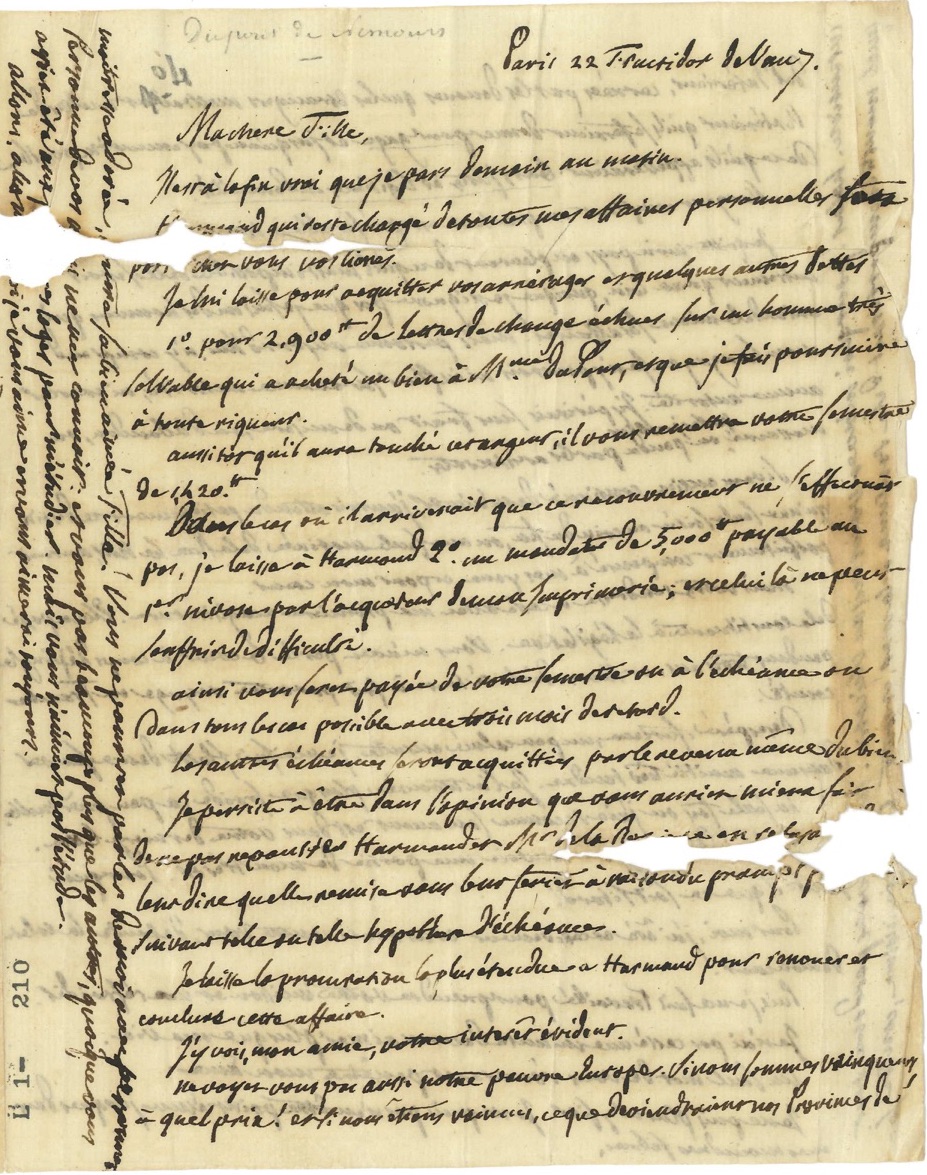 Dupont de Nemours
Paris 22 Fructidor de l'an 7.
Ma chere Fille,
Il est à la fin vrai que je pars demain au matin.
qui reste chargé de toutes mes affaires personnelles fera
chez vous vos livres.
Je lui laisse pour acquitter vos arrérages et quelques autres dettes
1°. pour 2,900ᵗᵗ de lettres de change échues sur un homme très
solvable qui a acheté un bien à Mme du Pont, et que je fais poursuivre
à toute rigueur.
aussitôt qu'il aura touché cet argent, il vous remettra votre semestre
de 1,420.ᵗᵗ
Dans le cas où il arriverait que ce recouvrement ne s'effectuât
pas, je laisse à Harmand 2°. un mandat de 5,000ᵗᵗ payable au
1er nivose par l'acquereur de mon Imprimerie; et celui là ne peut
souffrir de difficulté.
ainsi vous serez payée de votre semestre ou à l'échéance ou
dans tous les cas possible avec trois mois de retard.
les autres échéances seront acquittées par le revenu même du bien.
Je persiste à être dans l'opinion que vous auriez mieux fait
de ne pas repousser Harmand et Mr de la
leur dire quelle remise vous leur feriez à raison du prompt
suivant telle ou telle hypothèse d'échéances.
Je laisse la procuration la plus étendue a Harmand pour renouer et
conclure cette affaire.
J'y vois, mon amie, votre interêt évident.
ne voyez vous pas aussi notre pauvre Europe. Si nous sommes vainqueurs
à quel prix! et si nous étions vaincus, ce que deviendraient nos Provinces de
maitresse adorée, ma bien aimée fille. Vous ne pouvez parler de moi avec personne
Personne de vos ne me connait: et vous pas beaucoup plus que les autres, quoique vous
ayiez été aux loges pour m'étudier. mais vous n'aimez pas l'étude.
allons, allons je vous aime et vous aimerai toujours.
E 1- 210